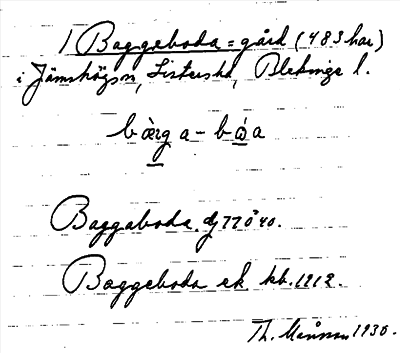 1 Baggeboda = gård (483 har)
i Jämshögs sn, Listers hd, Blekinge l.
bàrg a - bǫ́a
Baggaboda dj 77 ö 40.
Baggeboda ek. kb. 1912.
Th. Månsson 1930.